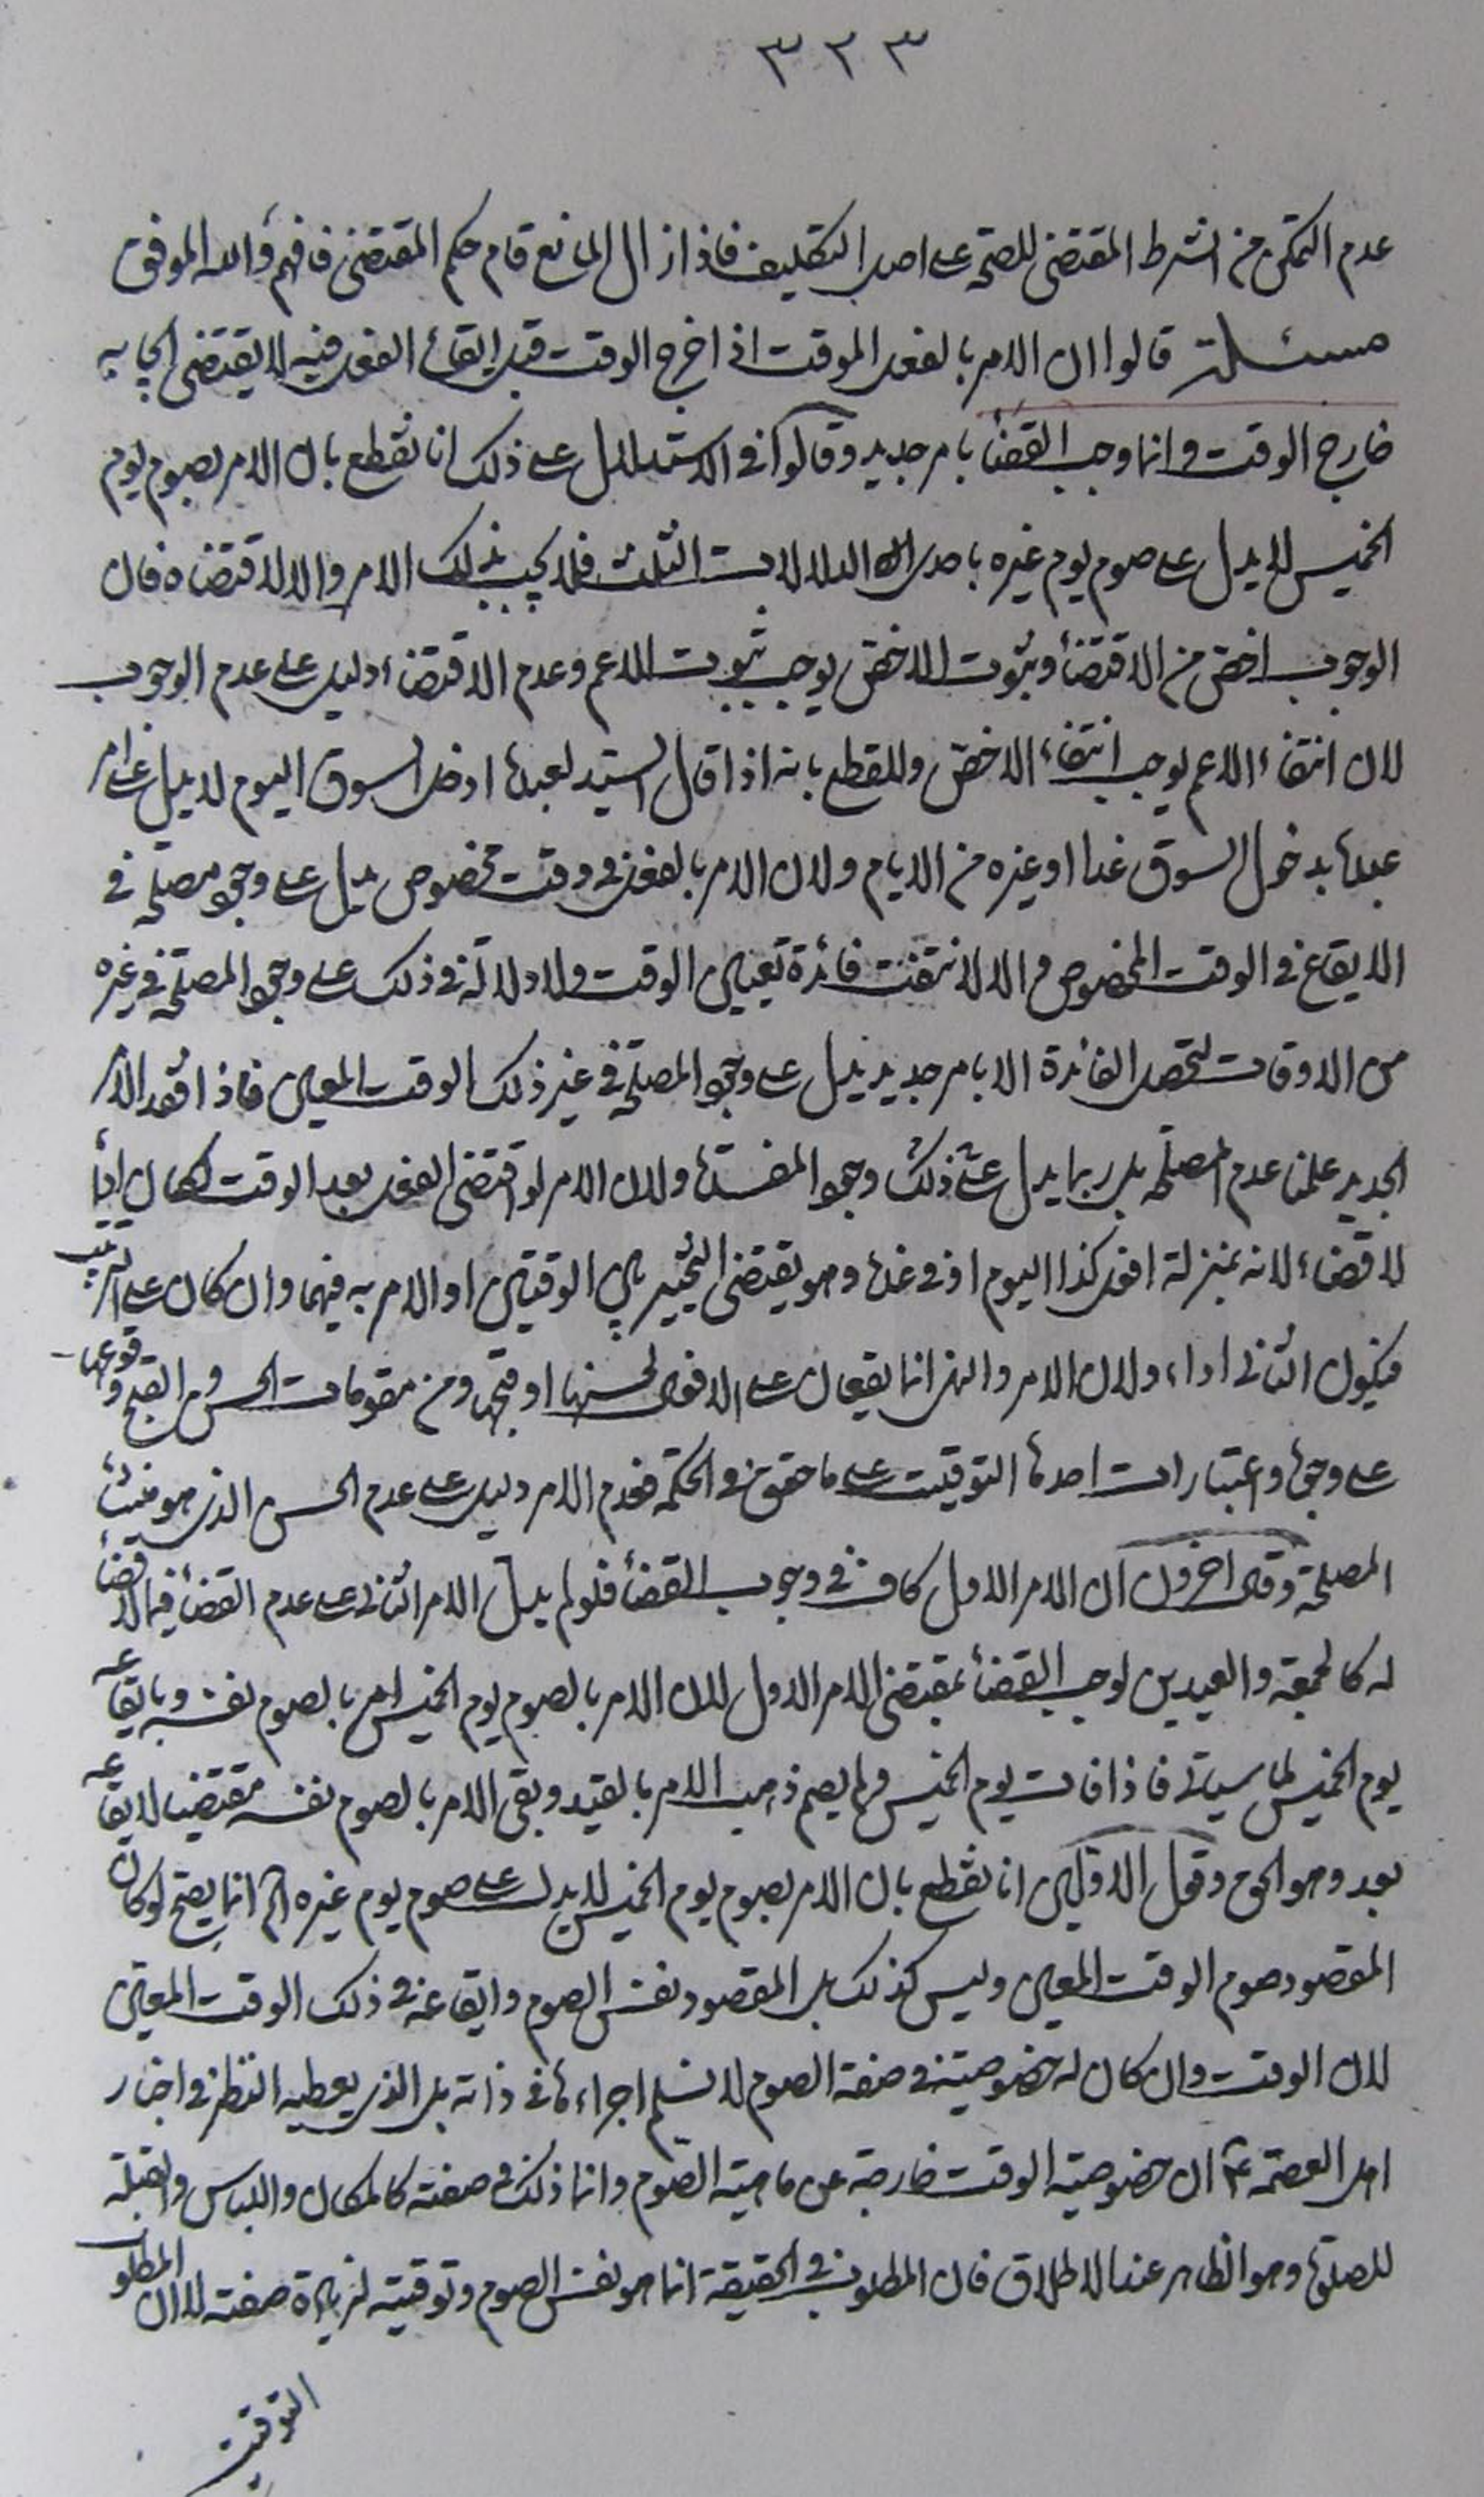 ٣٢٣
عدم التمكن من الشرط المقتضى للصحة على اصل التكليف فاذا زال المانع قام حكم المقتضى فافهم والله الموفق
مسئلة قالوا ان الامر بالفعل الموقت اذا خرج الوقت قبل ايقاع الفعل فيه لا يقتضى ايجابه
خارج الوقت وانما وجب القضاء بامر جديد وقالوا فى الاستدلال على ذلك انا نقطع بان الامر بصوم يوم
الخميس لا يدل على صوم يوم غيره باحدى الدلالات الثلث فلا يجب بذلك الامر والا لاقتضاه فان
الوجوب اخص من الاقتضاء وثبوت الاخص يوجب ثبوت الاعم وعدم الاقتضاء دليل على عدم الوجوب
لان انتفاء الاعم يوجب انتفاء الاخص وللقطع بانه اذا قال السيد لعبده ادخل السوق اليوم لا يدل على امر
عبده بدخول السوق غدا او غيره من الايام ولان الامر بالفعل فى وقت مخصوص يدل على وجود مصلحة فى
الايقاع فى الوقت المخصوص والا لانتفت فائدة تعيين الوقت ولا دلالة فى ذلك على وجود المصلحة فى غيره
من الاوقات لتحصل الفائدة الا بامر جديد يدل على وجود المصلحة فى غير ذلك الوقت المعين فاذا فقد الامر
الجديد علمنا عدم المصلحة بل ربما يدل على ذلك وجود المفسدة ولان الامر لو اقتضى الفعل بعد الوقت لكان اداء
لا قضاء لانه بمنزلة افعل كذا اليوم او فى غد وهو يقتضى التخيير بين الوقتين او الامر به فيهما وان كان على الترتيب
فيكون الثانى اداء ولان الامر والنهى انما يقعان على الافعال لحسنها او قبحها ومن مقومات الحسن والقبح وقوعها
على وجوه واعتبارات احدها التوقيت على ما حقق فى الحكمة فعدم الامر دليل على عدم الحسن الذى هو منشأ
المصلحة وقال آخرون ان الامر الاول كاف فى وجوب القضاء فلو لم يدل الامر الثانى على عدم القضاء فيما لا قضاء
له كالجمعة والعيدين لوجب القضاء بمقتضى الامر الاول لان الامر بالصوم يوم الخميس امر بالصوم نفسه وبايقاعه
يوم الخميس لما سيأتى فاذا فات يوم الخميس ولم يصم ذهب الامر بالقيد وبقى الامر بالصوم نفسه مقتضيا لايقاعه
بعد وهو الحق وقول الاولين انا نقطع بان الامر بصوم يوم الخميس لا يدل على صوم يوم غيره الخ انما يصح لو كان
المقصود صوم الوقت المعين وليس كذلك بل المقصود نفس الصوم وايقاعه فى ذلك الوقت المعين
لان الوقت وان كان له خصوصية فى صفة الصوم لا نسلم اجراءها فى ذاته بل الذى يعطيه النظر فى اخبار
اهل العصمة ع ان خصوصية الوقت خارجة عن ماهية الصوم وانما ذلك فى صفته كالمكان واللباس والقبلة
للصلوة وهو الظاهر عند الاطلاق فان المطلوب فى الحقيقة انما هو نفس الصوم وتوقيته لزيادة صفته لا ان المطلوب
التوقيت